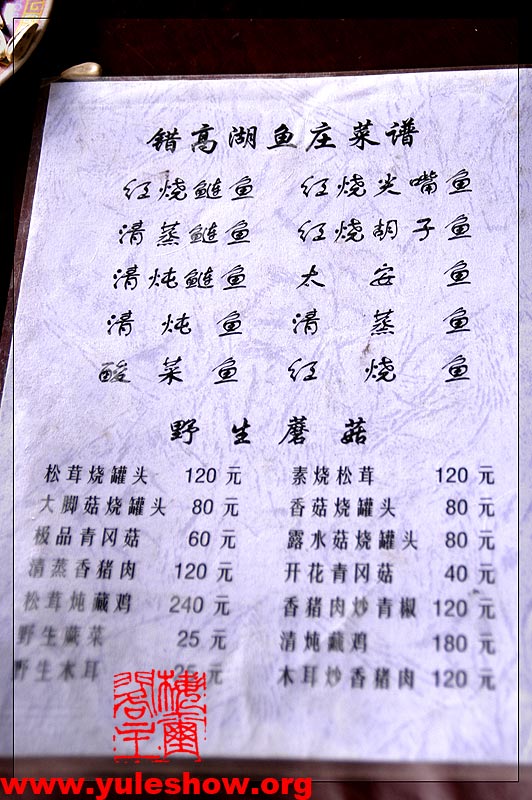 错高湖鱼庄菜谱
红烧鲢鱼 红烧尖嘴鱼
清蒸鲢鱼 红烧胡子鱼
清炖鲢鱼 太安鱼
清炖鱼 清蒸鱼
酸菜鱼 红烧鱼
野生蘑菇
松茸烧罐头 120元 素烧松茸 120元
大脚菇烧罐头 80元 香菇烧罐头 80元
极品青冈菇 60元 露水菇烧罐头 80元
清蒸香猪肉 120元 开花青冈菇 40元
松茸炖藏鸡 240元 香猪肉炒青椒 120元
野生蕨菜 25元 清炖藏鸡 180元
野生木耳 25元 木耳炒香猪肉 120元
www.yuleshow.org